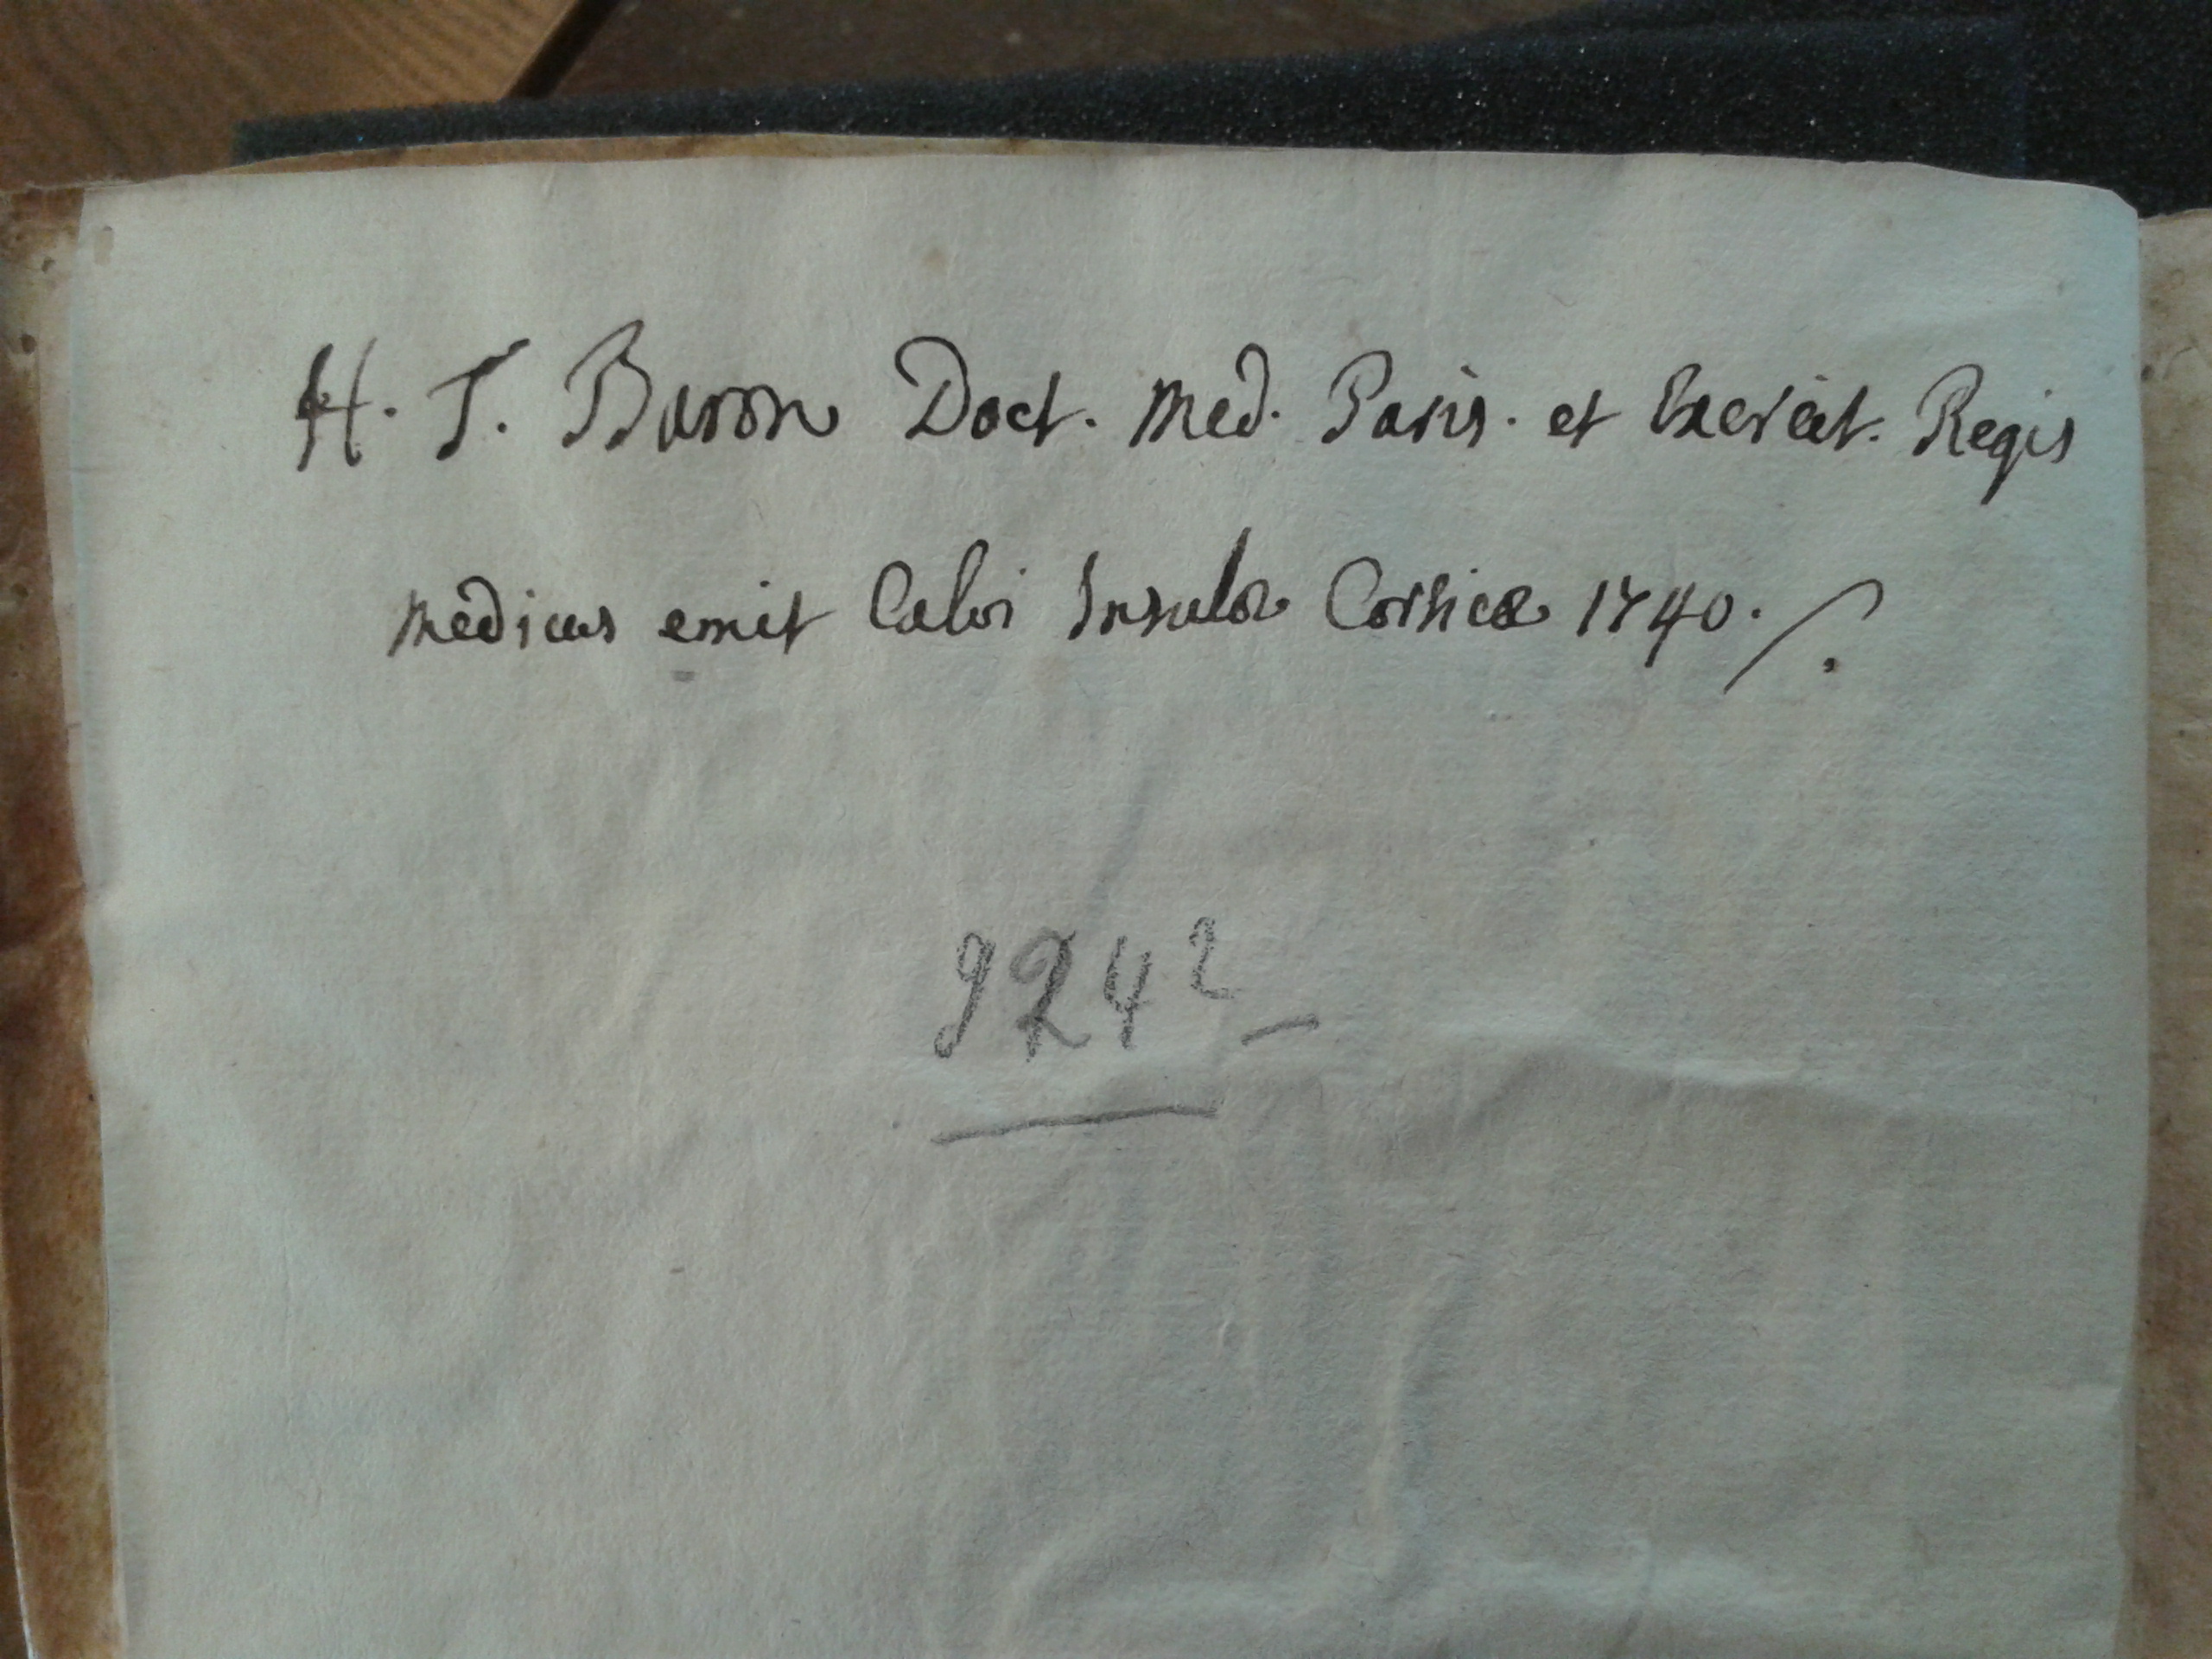 H. T. Baron Doct. Med. Paris. et Exercit. Regis
medicus emit Calvi Insulæ Corsicæ 1740.
924²